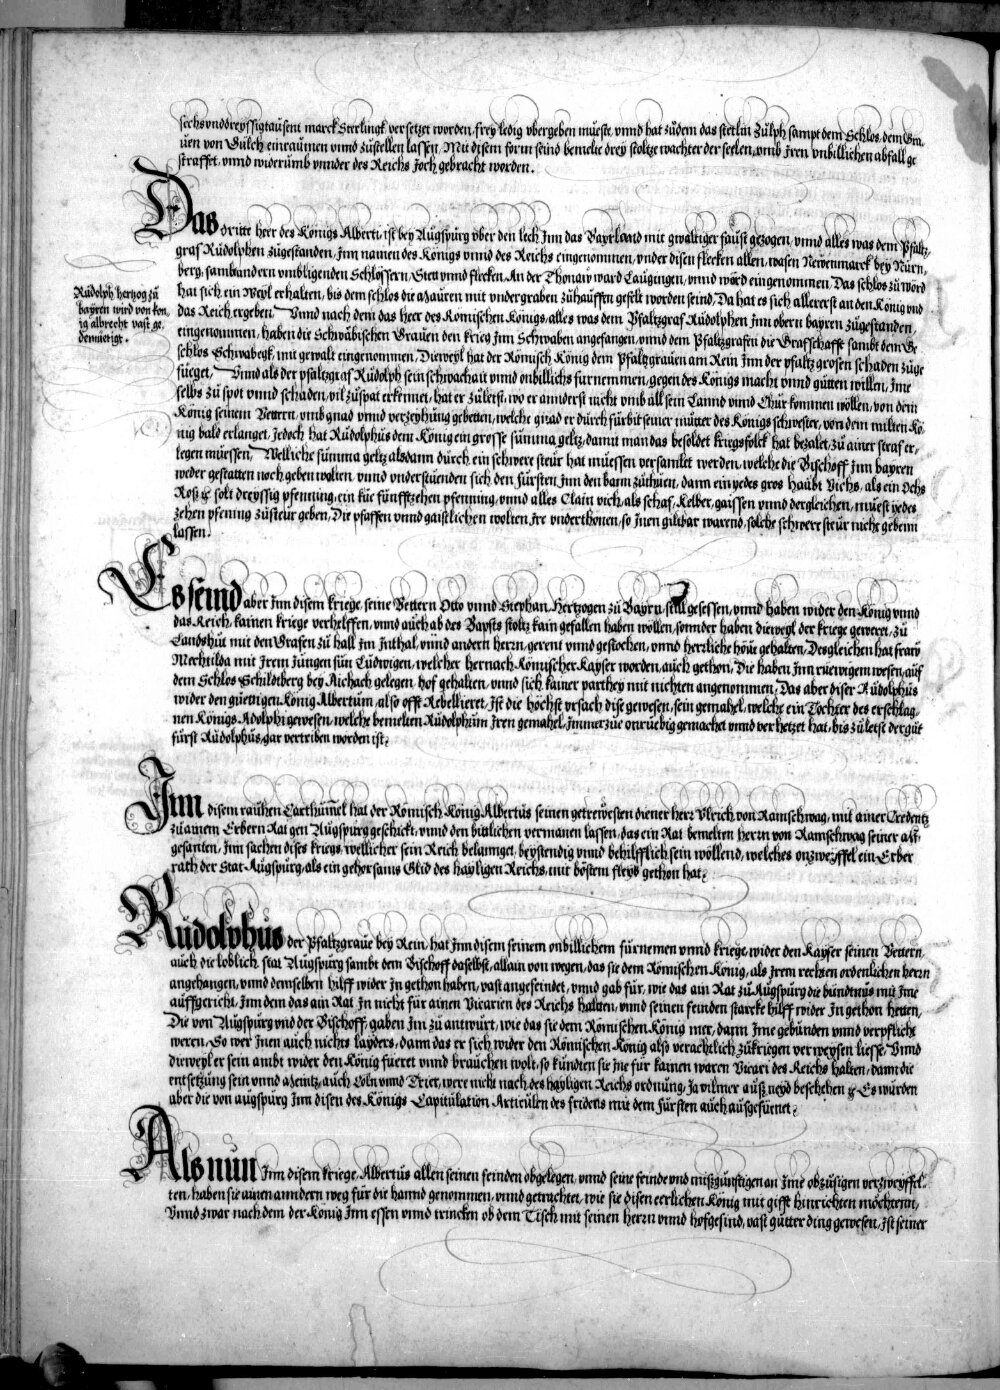 sechsvnddreyssigtausent marck Sterlingk versetzet worden, frey ledig vbergeben müeste, vnnd hat züdem das stetlin Zülph sampt dem Schlos, dem Gra-
uen von Gülch einraümen vnnd züstellen lassen, Mit disem form seind bemelte drey stoltze wachter der seelen, vmb Jren vnbillichen abfall ge
straffet, vnnd widerümb vnnder des Reichs Joch gebracht worden.
Das dritte heer des Königs Alberti, ist bey Augspürg vber den lech Jnn das Bayrlannd mit gwaltiger faüst gezogen, vnnd alles was dem Pfaltz-
graf Rüdolphen zügestanden, Jnn namen des Königs vnnd des Reichs eingenommen, vnder disen flecken allen, wasen Newenmarck bey Nürn-
berg, sambt andern vmbligenden Schlössern, Stett vnnd flecken. An der Thonaw ward Laugingen, vnnd wörd eingenommen. Das schlos zü wörd
hat sich ein Weyl erhalten, bis dem schlos die Maüren mit vndergraben zühaüffen gefelt worden seind, Da hat es sich allererst an den König vnd
das Reich ergeben. Vnnd nach dem das heer des Römischen Königs, alles was dem Pfaltzgraf Rüdolphen Jnn obern bayren zügestanden,
eingenommen, haben die Schwäbischen Grauen den krieg Jnn Schwaben angefangen, vnnd dem Pfaltzgrafen die Grafschafft sambt dem Ge
schlos Schwabegk, mit gewalt eingenommen, Dieweyl hat der Römisch König dem Pfaltzgrauen am Rein Jnn der pfaltz grosen schaden züge
füeget, Vnnd als der pfaltzgraf Rüdolph sein schwachait vnnd onbillichs fürnemmen, gegen des Königs macht vnnd gütten willen, Jme
selbs zü spot vnnd schaden, vil züspat erkennet, hat er zületst, wo er annderst nicht vmb all sein Lannd vnnd Chür kommen wöllen, von dem
König seinem Vettern, vmb gnad vnnd verzeyhüng gebetten, welche gnad er dürch fürbit seiner mütter des Königs schwester, von dem milten Kö-
nig bald erlanget, Jedoch hat Rüdolphüs dem König ein grosse sümma geltz, damit man das besoldet kriegsfolck hat bezalet, zü ainer straf er-
legen müessen, Welliche sümma geltz alsdann dürch ein schwere steür hat müessen versamlet werden, welche die Bischoff Jnn bayren
weder gestatten noch geben wolten, vnnd vnderstüenden sich den fürsten Jnn den bann züthüen, dann ein yedes gros haübt Vichs, als ein Ochs
Ross &c solt dreyssig pfenning, ein küe fünfftzehen pfenning, vnnd alles Clain vich, als schaf, Kelber, gaissen vnnd dergleichen, müest yedes
zehen pfening züsteür geben, Die pfaffen vnnd gaistlichen wolten Jre vnderthonen, so Jnen giltbar warend, solche schwere steür nicht gebenn
lassen.
Rüdolph hertzog zü
bayren wird von kön
ig albrecht vast ge
demüetigt.
Es seind aber Jnn disem kriege, seine Vettern Otto vnnd Stephan, Hertzogen zü Bayrn, still gesessen, vnnd haben wider den König vnnd
das Reich, kainen kriege verhelffen, vnnd auch ab des Bapsts stoltz kain gefallen haben wöllen, sonnder haben dieweyl der kriege geweret, zü
Landshüt mit den Grafen zü hall Jm Jnthal, vnnd andern herrn, gerent vnnd gestochen, vnnd herrliche höue gehalten, Desgleichen hat fraw
Mechtilda mit Jrem Jüngen sün Lüdwigen, welcher hernach Römischer Kayser worden, auch gethon, Die haben Jnn rüewigem wesen, auf
dem Schlos Schildberg bey Aichach gelegen, hof gehalten, vnnd sich kainer parthey mit nichten angenommen, Das aber diser Rüdolphüs
wider den güettigen König Albertüm, also offt Rebellieret, Jst die höchst vrsach dise gewesen, sein gemahel, welche ein Tochter des erschlag-
nen Königs Adolphi gewesen, welche bemelten Rüdolphüm Jren gemahel, Jmmerzüe onrüebig gemachet vnnd verhetzet hat, bis zületst der güt
fürst Rüdolphüs, gar vertriben worden ist.
Jnn disem raühen Carthümel hat der Römisch König Albertüs seinen getrewesten diener herr Vlrich von Ramschwag, mit ainer Credentz
zü ainem Erbern Rat gen Aügspürg geschickt, vnnd den bittlichen vermanen lassen, das ein Rat bemelten herrn von Ramschwag seiner Mt
gesanten, Jnn sachen dises kriegs, wellicher sein Reich belannget, beystendig vnnd behilfflich sein wöllend, welches onzweyffel ein Erber
rath der Stat Aügspürg, als ein gehorsams Glid des hayligen Reichs, mit böstem fleys gethon hat.
Rüdolphüs der Pfaltzgraüe bey Rein, hat Jnn disem seinem onbillichem fürnemen vnnd kriege, wider den Kayser seinen Vettern,
auch die loblich stat Aügspürg sambt dem Bischoff daselbst, allain von wegen, das sie dem Römischen König, als Jrem rechten ordenlichen herrn
angehangen, vnnd demselben hilff wider Jn gethon haben, vast angefeindet, vnnd gab für, wie das ain Rat zü Aügspürg die bündtnüs mit Jme
aüffgericht, Jnn dem das ain Rat Jn nicht für ainen Vicarien des Reichs halten, vnnd seinen feinden starcke hilff wider Jn gethon hetten,
Die von Aügspürg vnd der Bischoff, gaben Jm zü antwürt, wie das sie dem Römischen König mer, dann Jme gebünden vnnd verpflicht
weren, So wer Jnen auch nichts layders, dann das er sich wider den Römischen König also verachtlich zükriegen verweysen liesse, Vnnd
dieweyl er sein ambt wider den König füeret vnnd braüchen wolt, so kündten sie Jne für kainen waren Vicari des Reichs halten, dann die
entsetzüng sein vnnd Meintz, auch Cöln vnnd Trier, were nicht nach des hayligen Reichs ordnüng, Ja vilmer aüs neyd beschehen &c Es würden
aber die von aügspürg Jnn disen des Königs Capitülation Articülen des fridens mit dem fürsten auch aüsgefüeret.
Als nün Jnn disem kriege, Albertüs allen seinen feinden obgelegen, vnnd seine feinde vnd missgünstigen an Jme obzüsigen verzweyffel-
ten, haben sie ainen anndern weg für die hannd genommen, vnnd getrachtet, wie sie disen eerlichen König mit gifft hinrichten möchtenn,
Vnnd zwar nach dem der König Jnn essen vnnd trincken ob dem Tisch mit seinen herrn vnnd hofgesind, vast gütter ding gewesen, Jst seiner